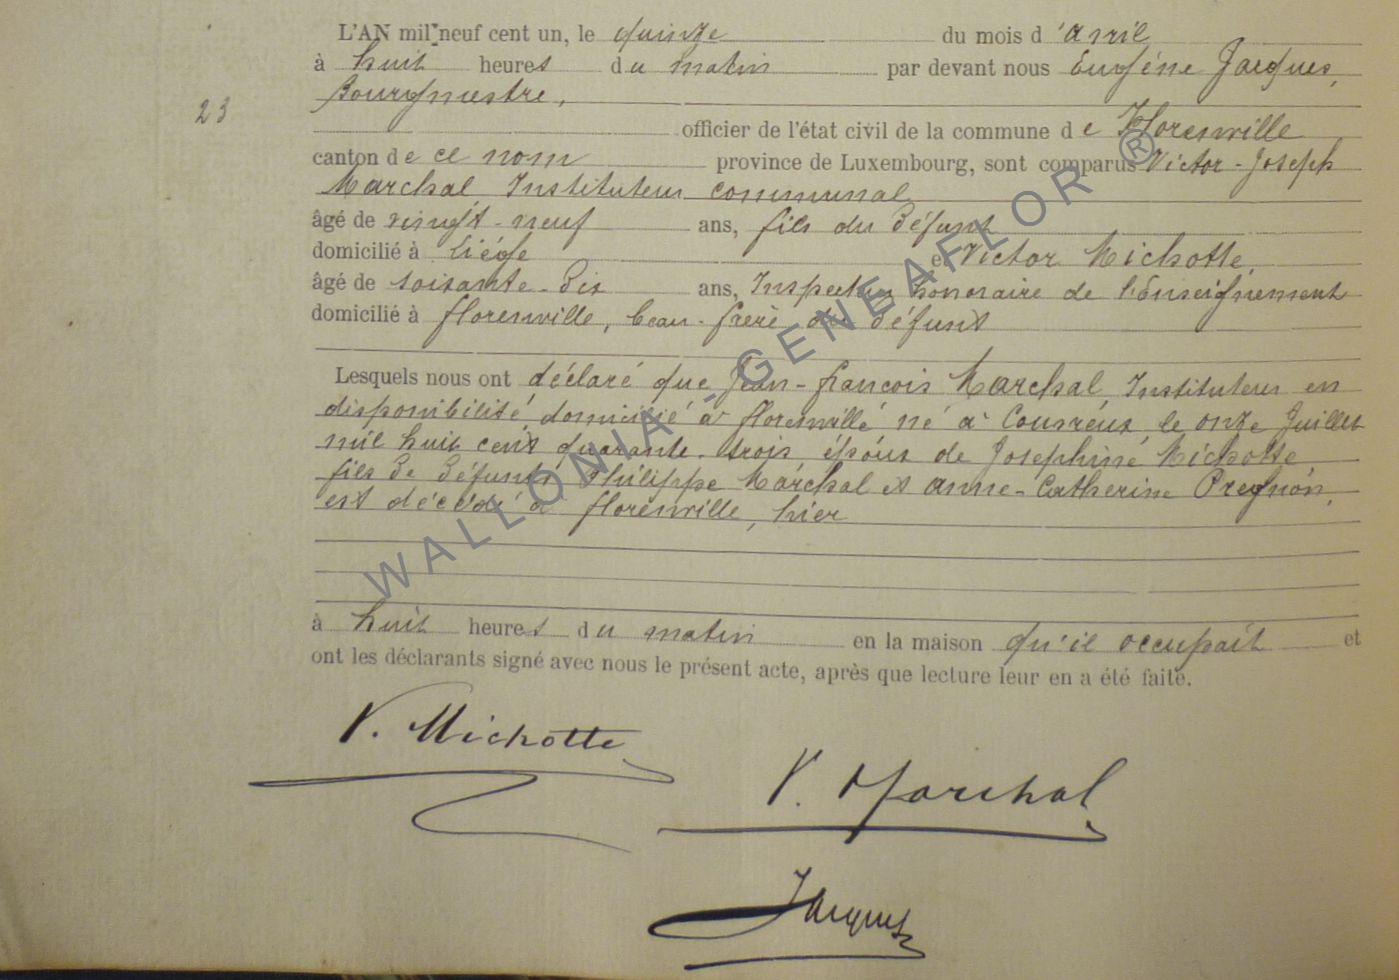 L'AN mil neuf cent un, le quinze du mois d'avril
à huit heures du matin par devant nous Eugène Jacques,
Bourgmestre,
23
officier de l'état civil de la commune de Florenville
canton de ce nom province de Luxembourg, sont comparus Victor-Joseph
Marchal Instituteur communal
âgé de vingt-neuf ans, fils du défunt
domicilié à Liége et Victor Michotte,
âgé de soixante-dix ans, Inspecteur honoraire de l'Enseignement
domicilié à florenville, beau-frère du défunt
Lesquels nous ont déclaré que Jean-françois Marchal, Instituteur en
disponibilité, domicilié à florenville né à le onze Juillet
mil huit cent quarante-trois époux de Josephine Michotte
fils de défunts Philippe Marchal et anne-Catherine Pregnon,
est décédé à florenville, hier
à huit heures du matin en la maison qu'il occupait et
ont les déclarants signé avec nous le présent acte, après que lecture leur en a été faite.
V. Michotte
V. Marchal
Jacques
WALLONIA - GENEAFLOR ®